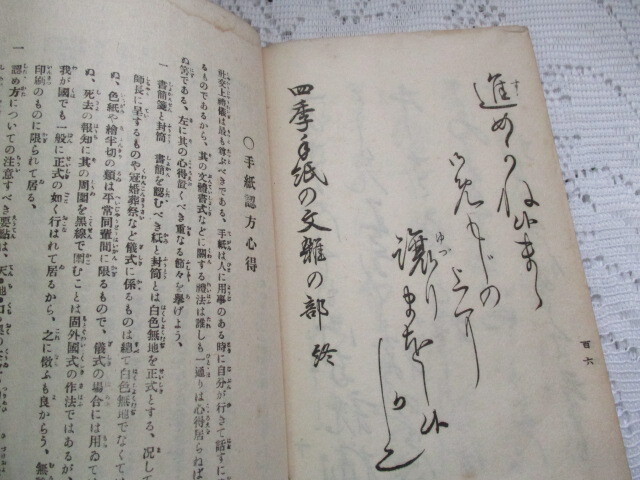 進めかね候まゝ
御免もじの上
譲りまゐらせ候
かしこ
四季手紙の文雛の部 終
百六
◯手紙認方心得
社交上禮儀は最も尊ぶべきである、手紙は人に用事のある時に自分が行きて話すに
るものであるから、其の文體書式などに關する禮法は誰しも一通りは心得居らねば
ぬ筈である、左に其の心得置くべき重なる節々を擧げよう。
一 書簡箋と封筒 書簡を認むべき紙と封筒とは白色無地を正式とする、況して
師長に呈するものや冠婚葬祭など儀式に係るものは總て白色無地でなくては
ぬ、色紙や繪半切の類は平常同輩間に限るもので、儀式の場合には用ゐて
ぬ、死去の報知に其の周圍を黒線で圍むことは固外國式の作法ではあるが、
我が國でも一般に正式の如く行はれて居るから、之に倣ふも良からう、無
印刷のものに限られて居る。
一 認め方についての注意すべき要點は、天地